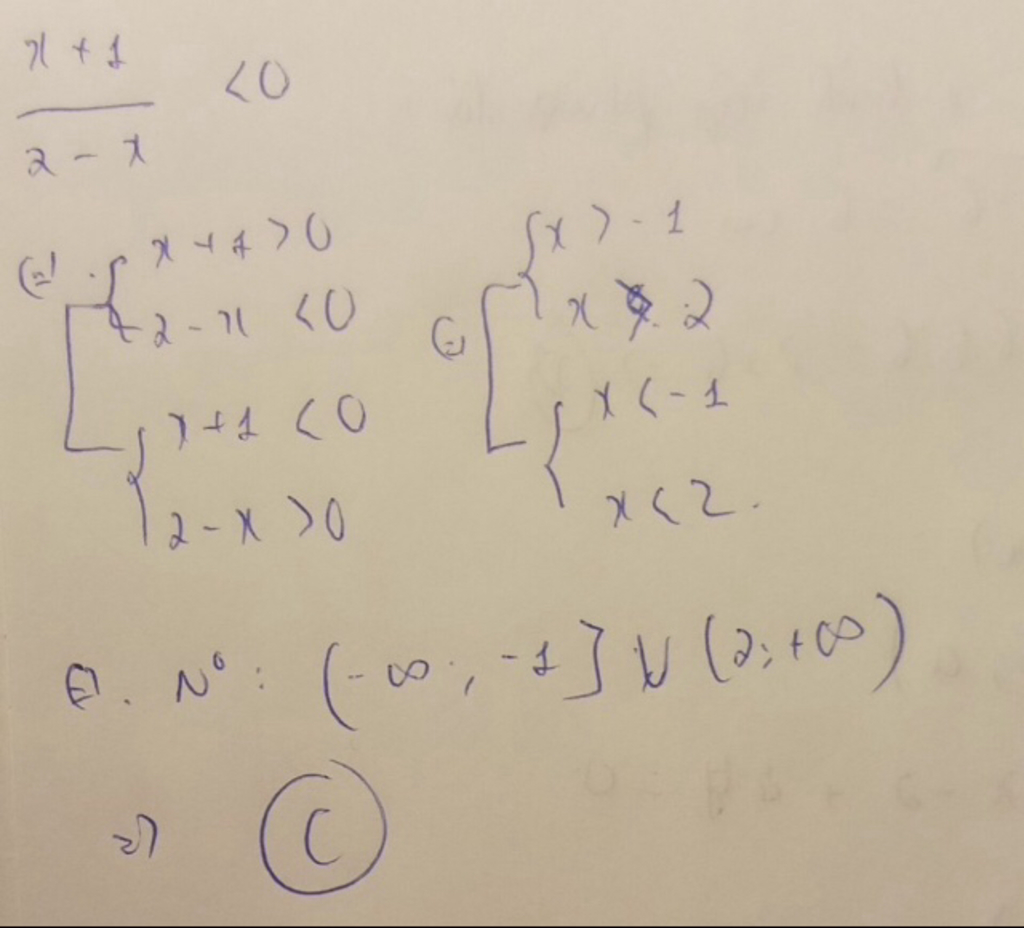 x + 1
/ 2 - x < 0
⇔ [ { x + 1 > 0
2 - x < 0
{ x + 1 < 0
2 - x > 0
⇔ [ { x > -1
x 2
{ x < -1
x < 2.
⇔. N°: (-∞; -1] ∪ (2; +∞)
⇒ C